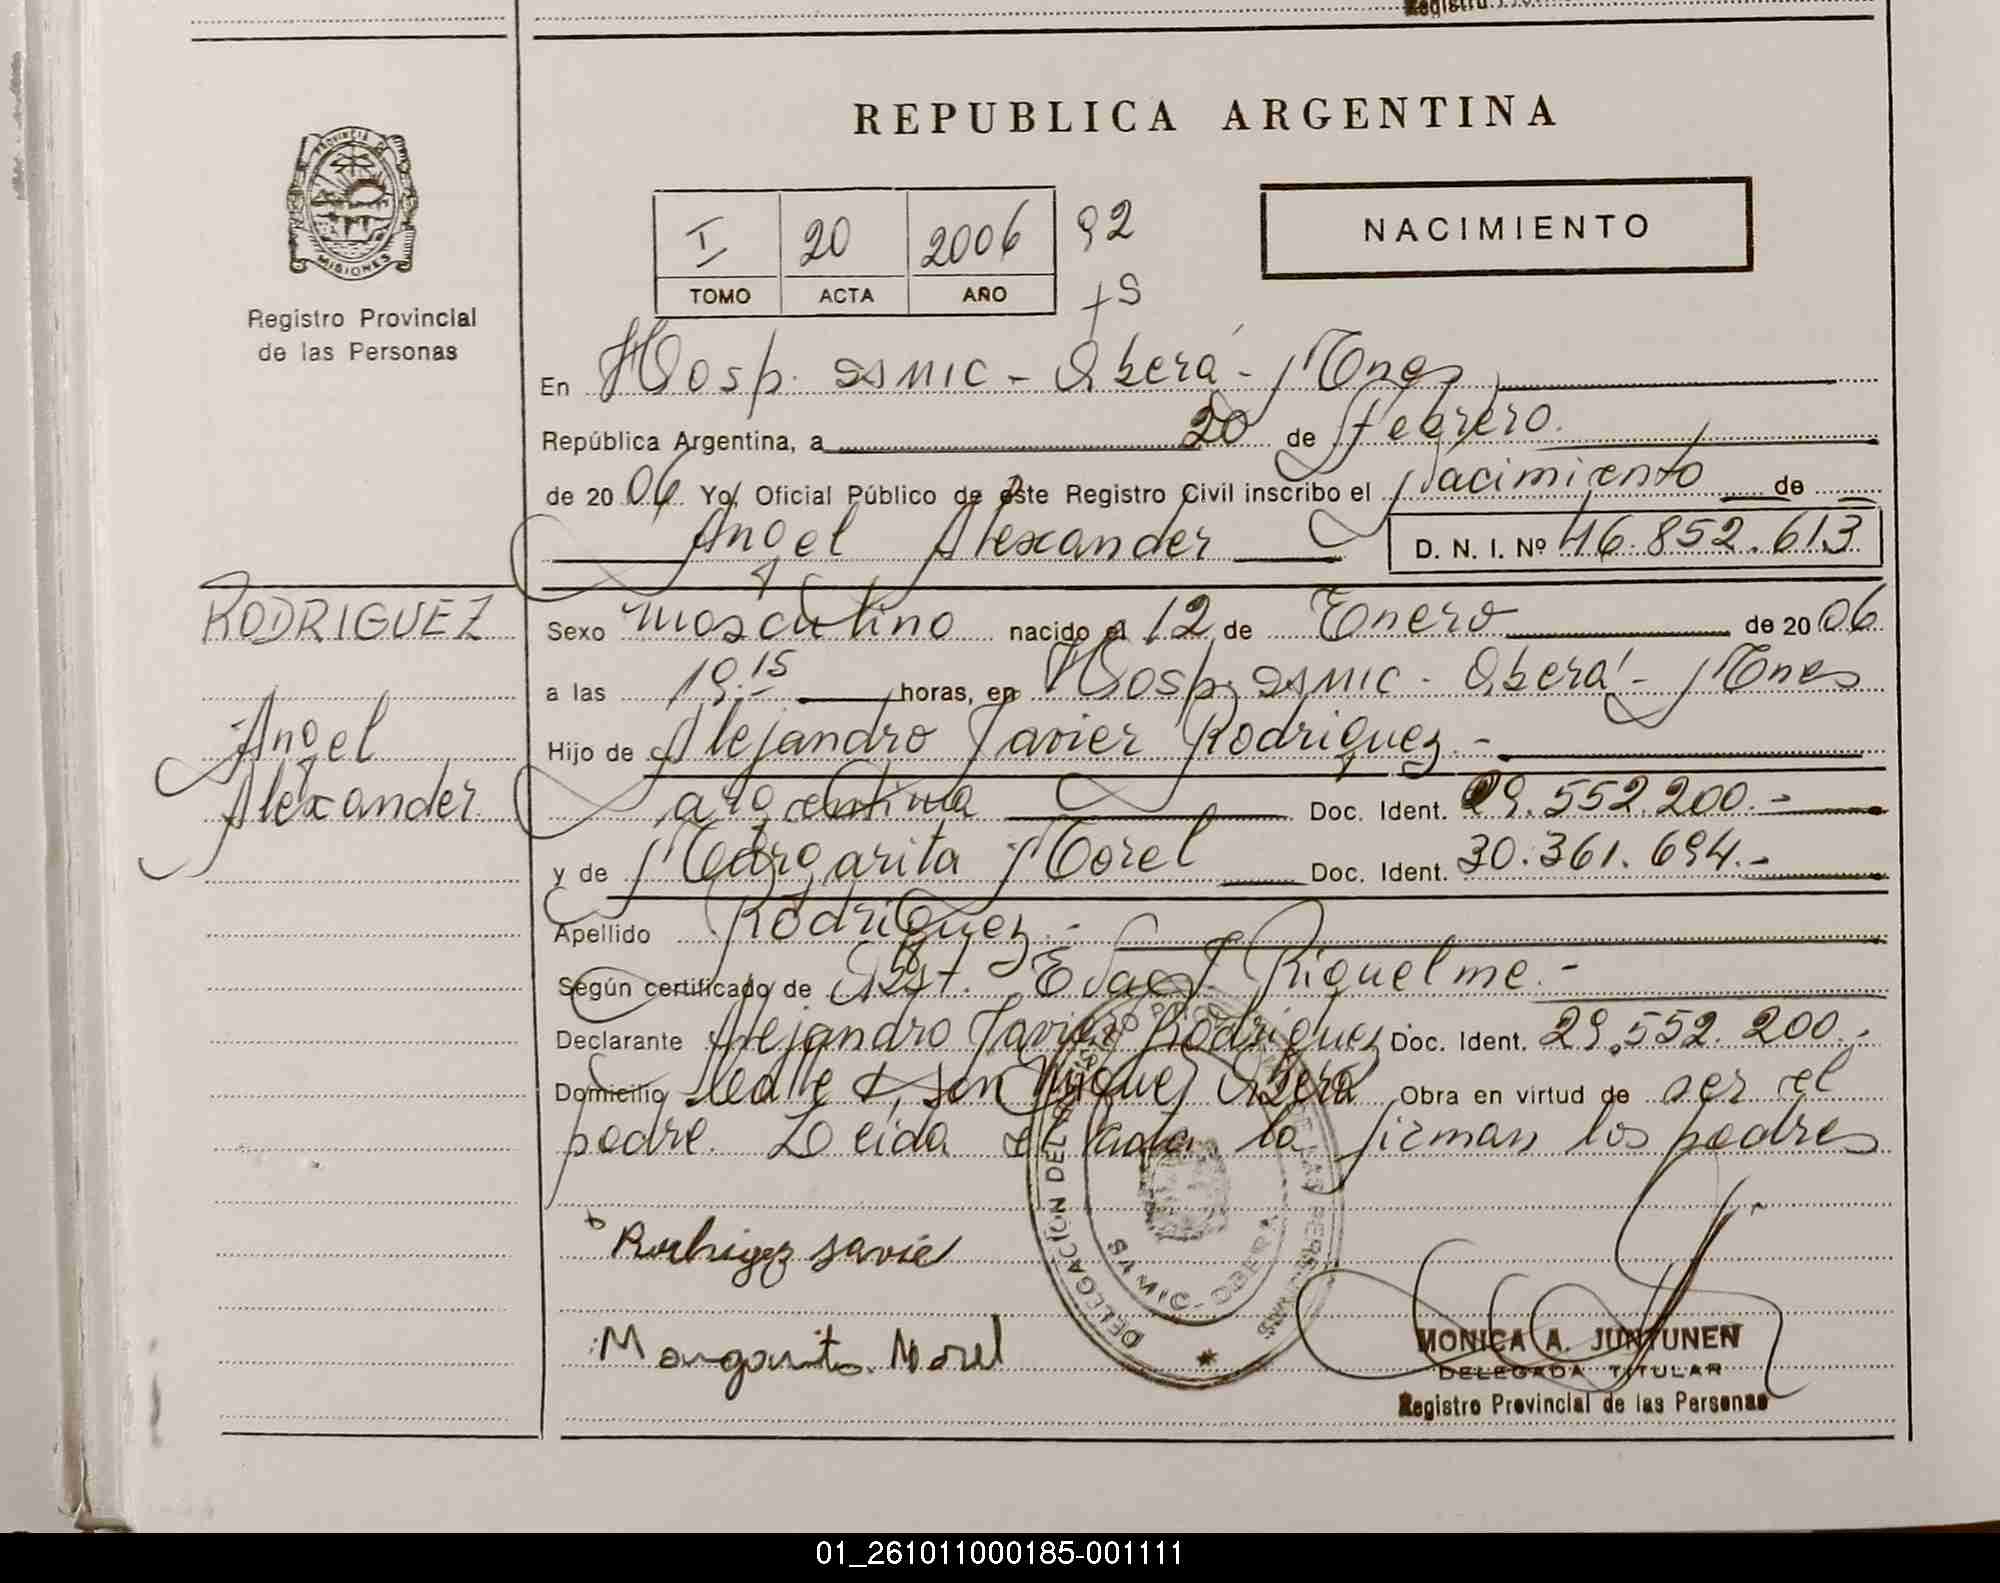 REPUBLICA ARGENTINA
PROVINCIA DE
MISIONES
Registro Provincial
de las Personas
I 20 2006 92
TOMO ACTA AÑO
NACIMIENTO
En Hosp. SAMIC - Oberá - Mnes
República Argentina, a 20 de febrero.
de 2006 Yo, Oficial Público de este Registro Civil inscribo el Nacimiento de
Angel Alexander D. N. I. Nº 46.852.613
RODRIGUEZ
Angel
Alexander
Sexo masculino nacido el 12 de Enero de 2006
a las 19:15 horas, en Hosp. SAMIC - Oberá - Mnes
Hijo de Alejandro Javier Rodriguez.-
argentina Doc. Ident. 29.552.200.-
y de Margarita Morel Doc. Ident. 30.361.694.-
Apellido Rodriguez.-
Según certificado de Obst. Riquelme.-
Declarante Alejandro Javier Rodriguez Doc. Ident. 29.552.200.-
Domicilio San Miguel Oberá Obra en virtud de ser el
padre. Leída el acta la firman los padres
Rodrigez Javie
Margarita Morel
DELEGACION DEL REGISTRO PROVINCIAL DE LAS PERSONAS
SAMIC - OBERA
MONICA A. JUNTUNEN
DELEGADA TITULAR
Registro Provincial de las Personas
01_261011000185-001111